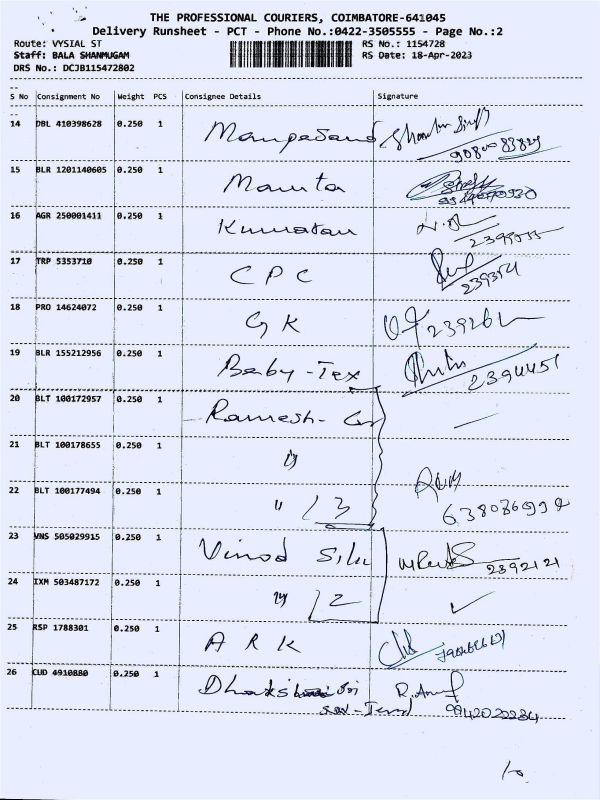 THE PROFESSIONAL COURIERS, COIMBATORE-641045
Delivery Runsheet - PCT - Phone No.:0422-3505555 - Page No.:2
Route: VYSIAL ST RS No.: 1154728
Staff: BALA SHANMUGAM RS Date: 18-Apr-2023
DRS No.: DCJB115472802
S No Consignment No Weight PCS Consignee Details Signature
14 DBL 410398628 0.250 1
15 BLR 1201140605 0.250 1 Mamta
16 AGR 250001411 0.250 1 Kumaran
17 TRP 5353710 0.250 1 C P C
18 PRO 14624072 0.250 1 G K
19 BLR 155212956 0.250 1 Baby-Tex 2394451
20 BLT 100172957 0.250 1 Ramesh-
21 BLT 100178655 0.250 1 "
22 BLT 100177494 0.250 1 " / 3
23 VNS 505029915 0.250 1 Vinod Silk 2392121
24 IXM 503487172 0.250 1 " / 2 ✓
25 RSP 1788301 0.250 1 A R K
26 CUD 4910880 0.250 1 R.